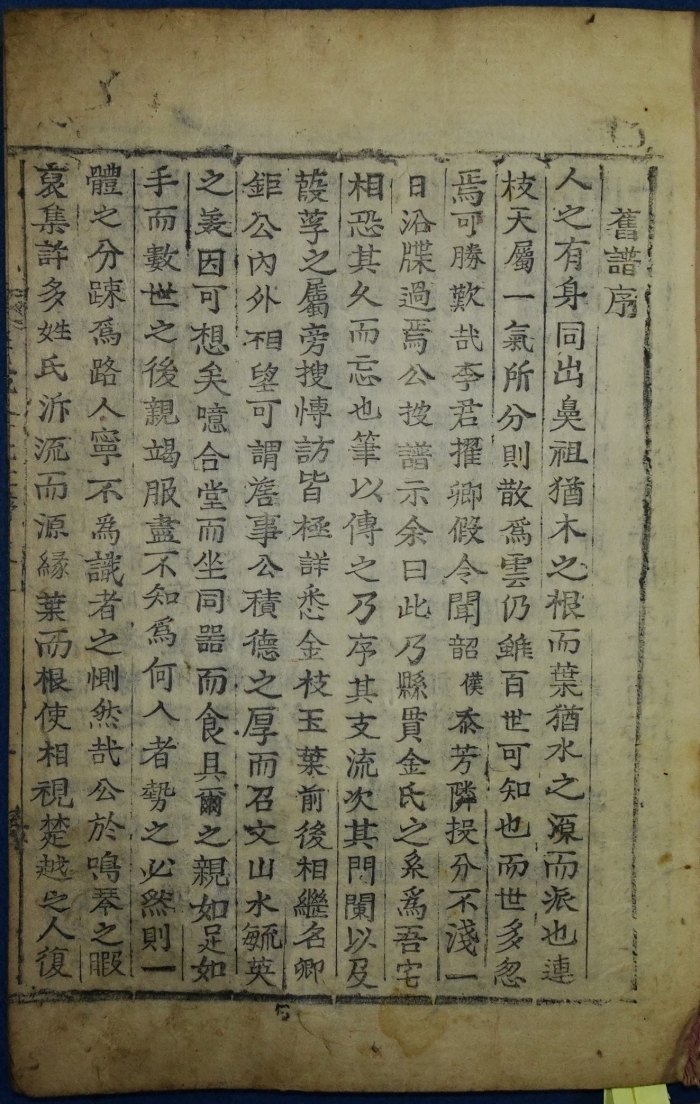 舊譜序
人之有身同出鼻祖猶木之根而葉猶水之源而派也連
枝天屬一氣所分則散爲雲仍雖百世可知也而世多忽
焉可勝歎哉李君擢卿假令聞韶僕忝芳隣挨分不淺一
日沿牒過焉公披譜示余曰此乃縣貫金氏之系爲吾宅
相恐其久而忘也筆以傳之乃序其支流次其門闌以及
葭莩之屬旁搜博訪皆極詳悉金枝玉葉前後相繼名卿
鉅公內外相望可謂詹事公積德之厚而召文山水毓英
之美因可想矣噫合堂而坐同器而食具爾之親如足如
手而數世之後親竭服盡不知爲何人者勢之必然則一
體之分踈爲路人寧不為識者之惻然哉公於鳴琴之暇
裒集許多姓氏泝流而源緣葉而根使相視楚越之人復